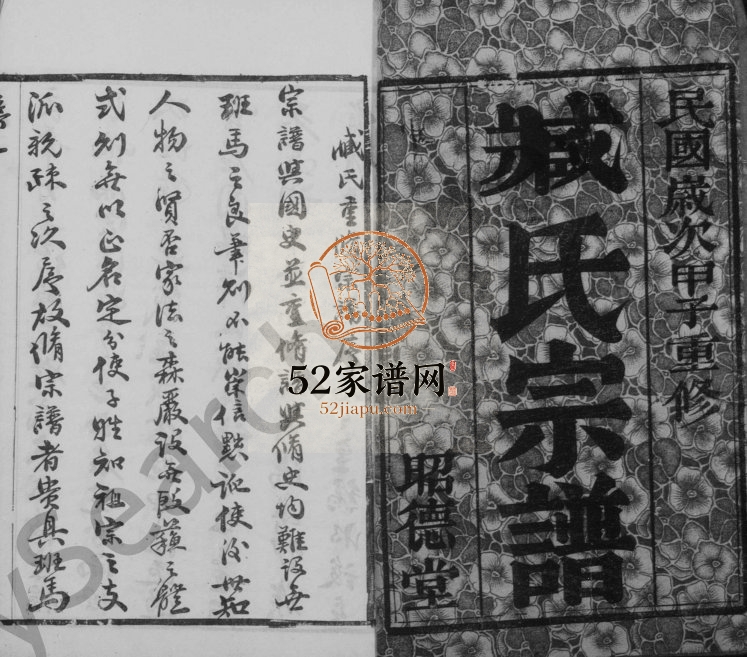 民國歲次甲子重修
臧氏宗譜
昭德堂
臧氏重
宗譜與國史並重修譜與修史均難設無
班馬之良筆則不能崇信黜訛使後世知
人物之賢否家法之森嚴設無歐蘇之體
式則無以正名定分使子姓知祖宗之支
派親疎之次序故脩宗譜者貴具班馬
52家谱网
52jiapu.com
ysearch